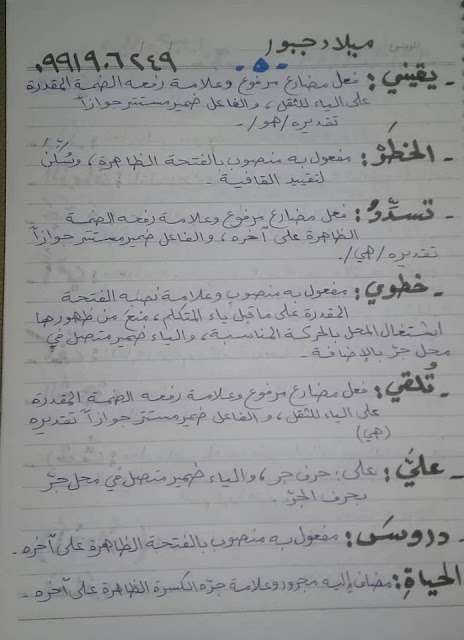 ميلاد جبور
٠٩٩١٩٠٦٢٤٩
-٥-
- يقيني: فعل مضارع مرفوع وعلامة رفعه الضمة المقدرة
على الياء للثقل، والفاعل ضمير مستتر جوازاً
تقديره /هو/.
- الخطَرْ: مفعول به منصوب بالفتحة الظاهرة، وسُكِّنَ
لتقييد القافية.
- تسدِّدُ: فعل مضارع مرفوع وعلامة رفعه الضمة
الظاهرة على آخره، والفاعل ضمير مستتر جوازاً
تقديره /هي/.
- خطوي: مفعول به منصوب وعلامة نصبه الفتحة
المقدرة على ما قبل ياء المتكلم، منع من ظهورها
اشتغال المحل بالحركة المناسبة، والياء ضمير متصل في
محل جرّ بالإضافة.
- تُلقي: فعل مضارع مرفوع وعلامة رفعه الضمة المقدرة
على الياء للثقل، والفاعل ضمير مستتر جوازاً تقديره
(هي)
- عليَّ: على: حرف جر، والياء ضمير متصل في محل جرّ
بحرف الجرّ.
- دروسَ: مفعول به منصوب بالفتحة الظاهرة على آخره.
الحياةِ: مضاف إليه مجرور وعلامة جرّه الكسرة الظاهرة على آخره.